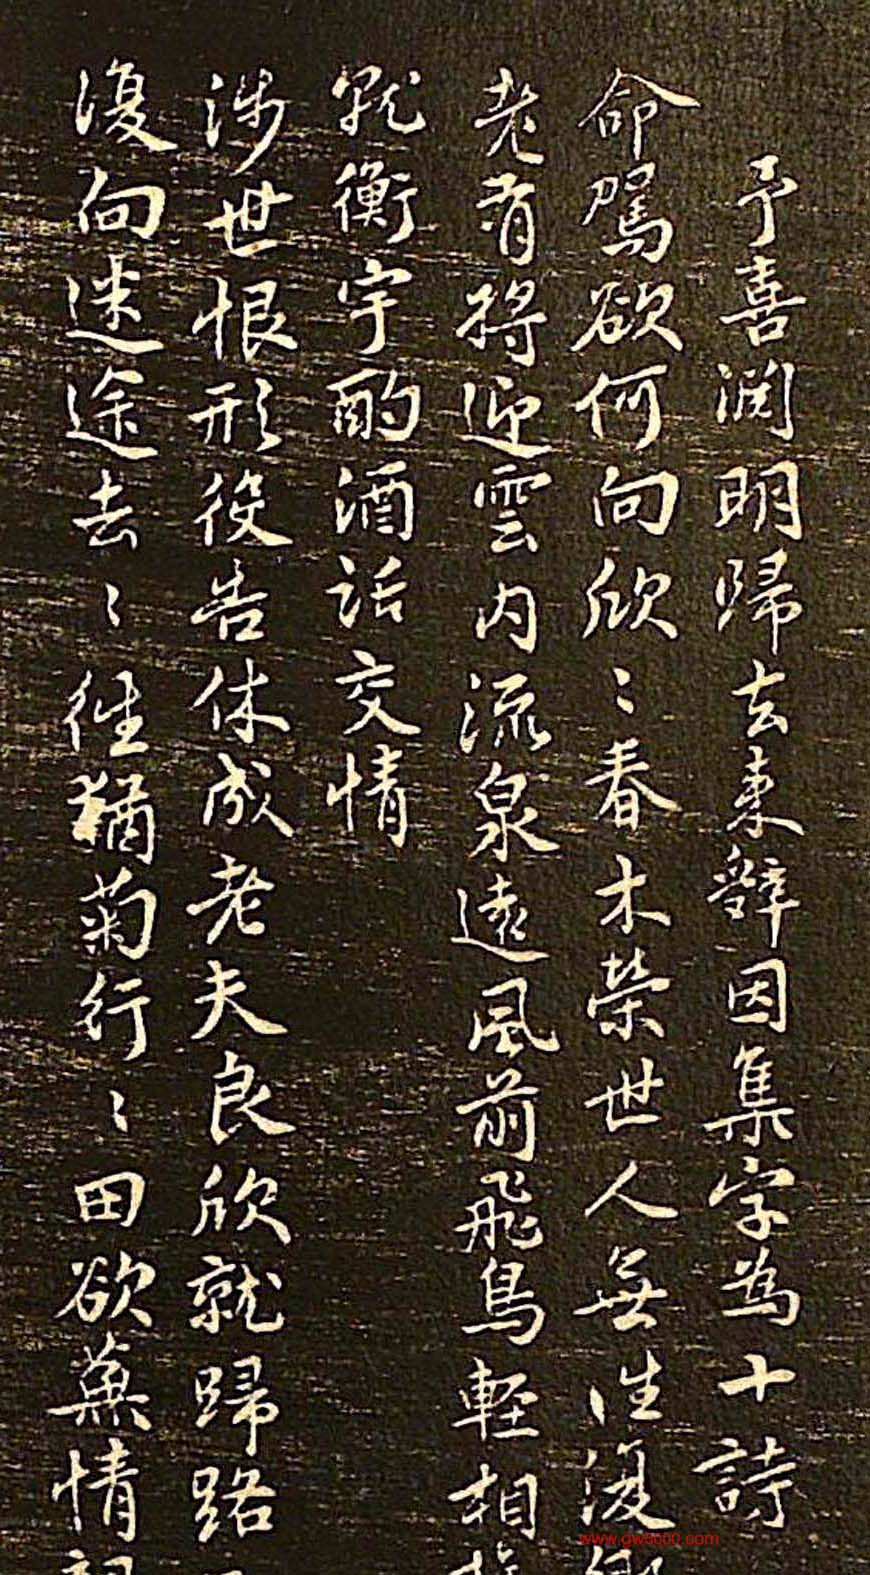 予喜渊明歸去来辭因集字為十詩
命駕欲何向欣〻春木榮世人無往復鄉
老有將迎雲内流泉遠風前飛鳥軽相
就衡宇酌酒話交情
涉世恨形役告休成老夫良欣就歸路
復向迷途去〻徑猶菊行〻田欲蕪情
www.gw5000.com